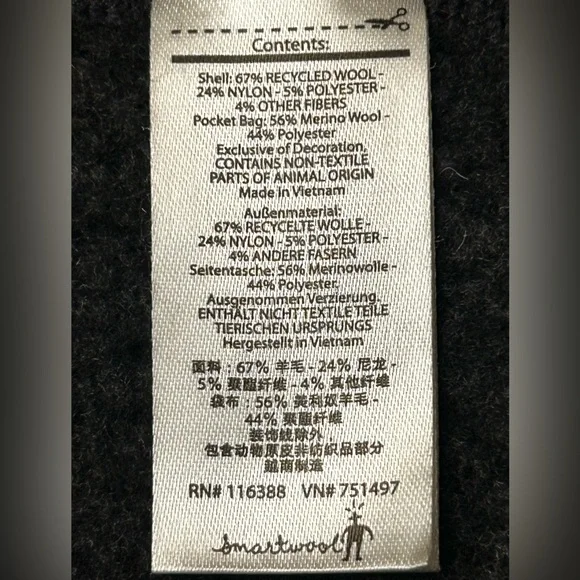 Contents:
Shell: 67% RECYCLED WOOL -
24% NYLON - 5% POLYESTER -
4% OTHER FIBERS
Pocket Bag: 56% Merino Wool -
44% Polyester
Exclusive of Decoration,
CONTAINS NON-TEXTILE
PARTS OF ANIMAL ORIGIN
Made in Vietnam
Außenmaterial:
67% RECYCELTE WOLLE -
24% NYLON - 5% POLYESTER -
4% ANDERE FASERN
Seitentasche: 56% Merinowolle -
44% Polyester.
Ausgenommen Verzierung.
ENTHÄLT NICHT TEXTILE TEILE
TIERISCHEN URSPRUNGS
Hergestellt in Vietnam
面料：67% 羊毛 - 24% 尼龙 -
5% 聚酯纤维 - 4% 其他纤维
袋布：56% 美利奴羊毛 -
44% 聚酯纤维
装饰线除外
包含动物原皮非纺织品部分
越南制造
RN# 116388 VN# 751497
smartwool